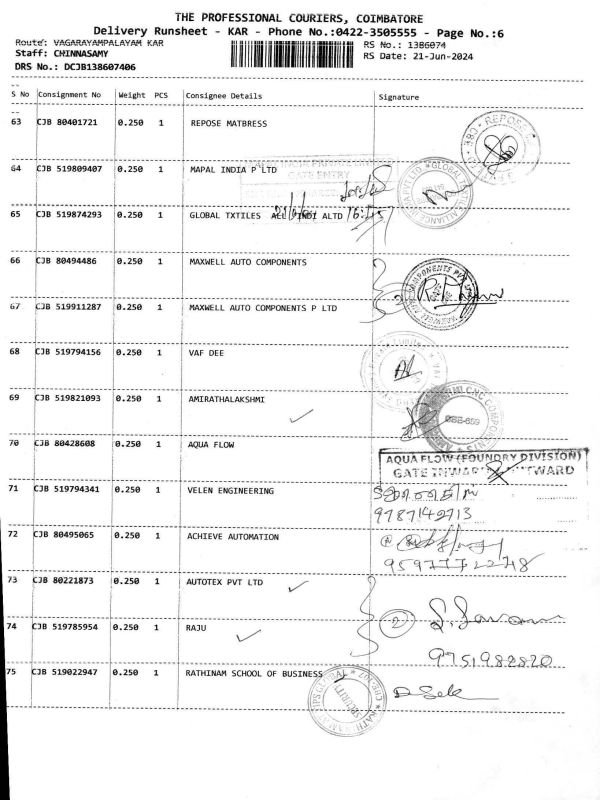 THE PROFESSIONAL COURIERS, COIMBATORE
Delivery Runsheet - KAR - Phone No.:0422-3505555 - Page No.:6
Route: VAGARAYAMPALAYAM KAR
RS No.: 1386074
Staff: CHINNASAMY
RS Date: 21-Jun-2024
DRS No.: DCJB138607406
S No Consignment No Weight PCS Consignee Details Signature
63 CJB 80401721 0.250 1 REPOSE MATBRESS
REPOSE
64 CJB 519809407 0.250 1 MAPAL INDIA P LTD
GATE ENTRY
65 CJB 519874293 0.250 1 GLOBAL TXTILES ALTD
66 CJB 80494486 0.250 1 MAXWELL AUTO COMPONENTS
67 CJB 519911287 0.250 1 MAXWELL AUTO COMPONENTS P LTD
68 CJB 519794156 0.250 1 VAF DEE
69 CJB 519821093 0.250 1 AMIRATHALAKSHMI
70 CJB 80428608 0.250 1 AQUA FLOW
AQUA FLOW (FOUNDRY DIVISION)
71 CJB 519794341 0.250 1 VELEN ENGINEERING
9787142713
72 CJB 80495065 0.250 1 ACHIEVE AUTOMATION
73 CJB 80221873 0.250 1 AUTOTEX PVT LTD
74 CJB 519785954 0.250 1 RAJU
2
9751982820
75 CJB 519022947 0.250 1 RATHINAM SCHOOL OF BUSINESS
SECURITY